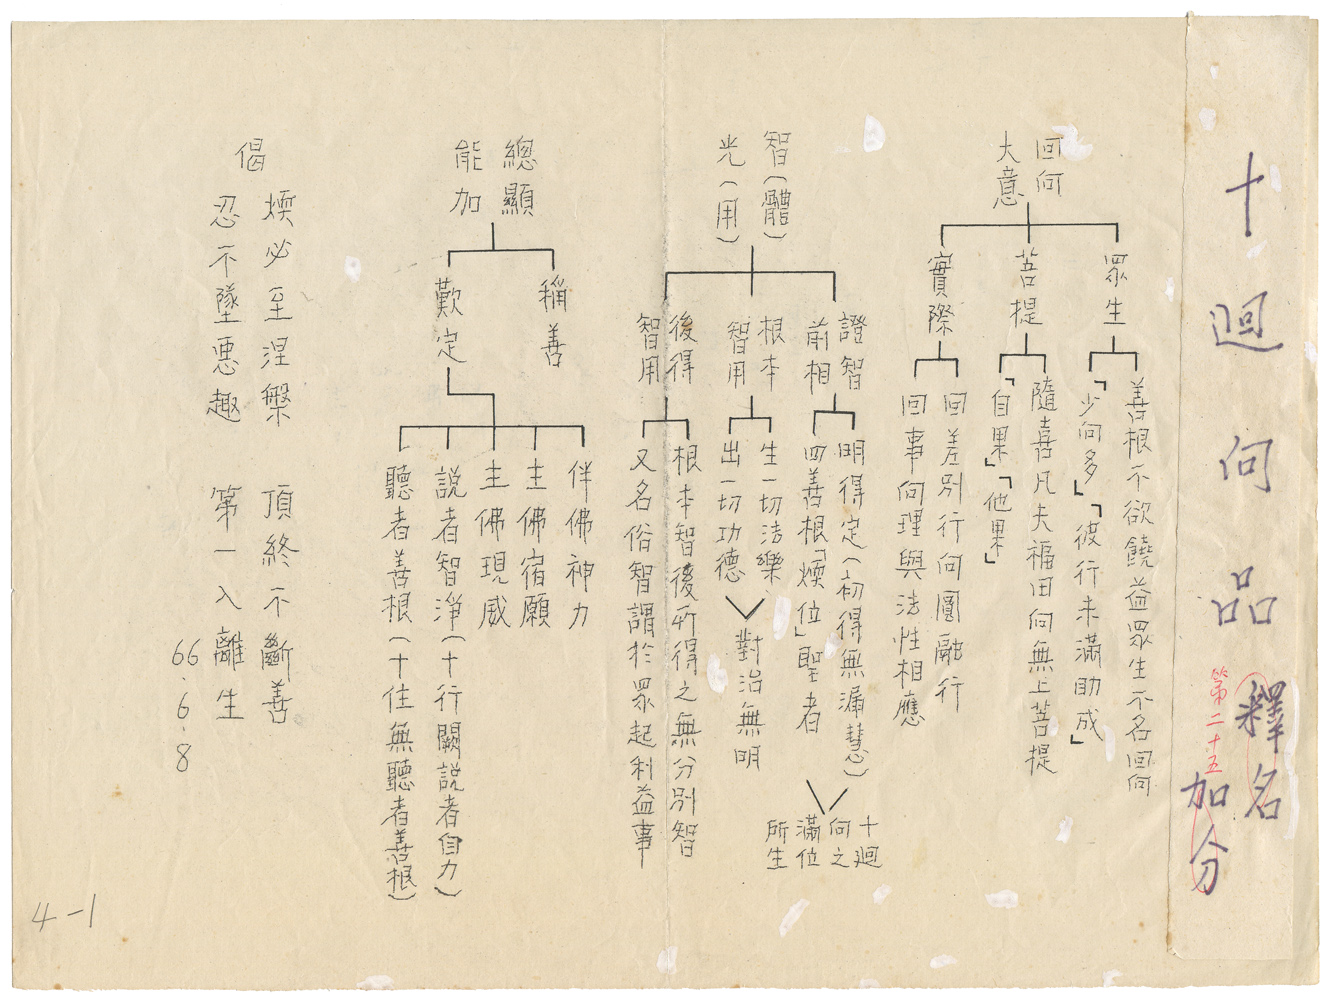 十迴向品
釋名
加分
第二十五
回向
大意
眾生
善根不欲饒益眾生不名回向
「少向多」「彼行未滿助成」
菩提
隨喜凡夫福田向無上菩提
「自果」「他果」
實際
回差別行向圓融行
回事向理與法性相應
智(體)
光(用)
證智
前相
明得定(初得無漏慧)
四善根「煖位」聖者
十迴
向之
滿位
所生
根本
智用
生一切法樂
出一切功德
對治無明
後得
智用
根本智後所得之無分別智
又名俗智謂於眾起利益事
總顯
能加
稱善
歎定
伴佛神力
主佛宿願
主佛現威
說者智淨(十行闕說者自力)
聽者善根(十住無聽者善根)
偈
煖必至涅槃 頂終不斷善
忍不墮惡趣 第一入離生
66.6.8
4-1